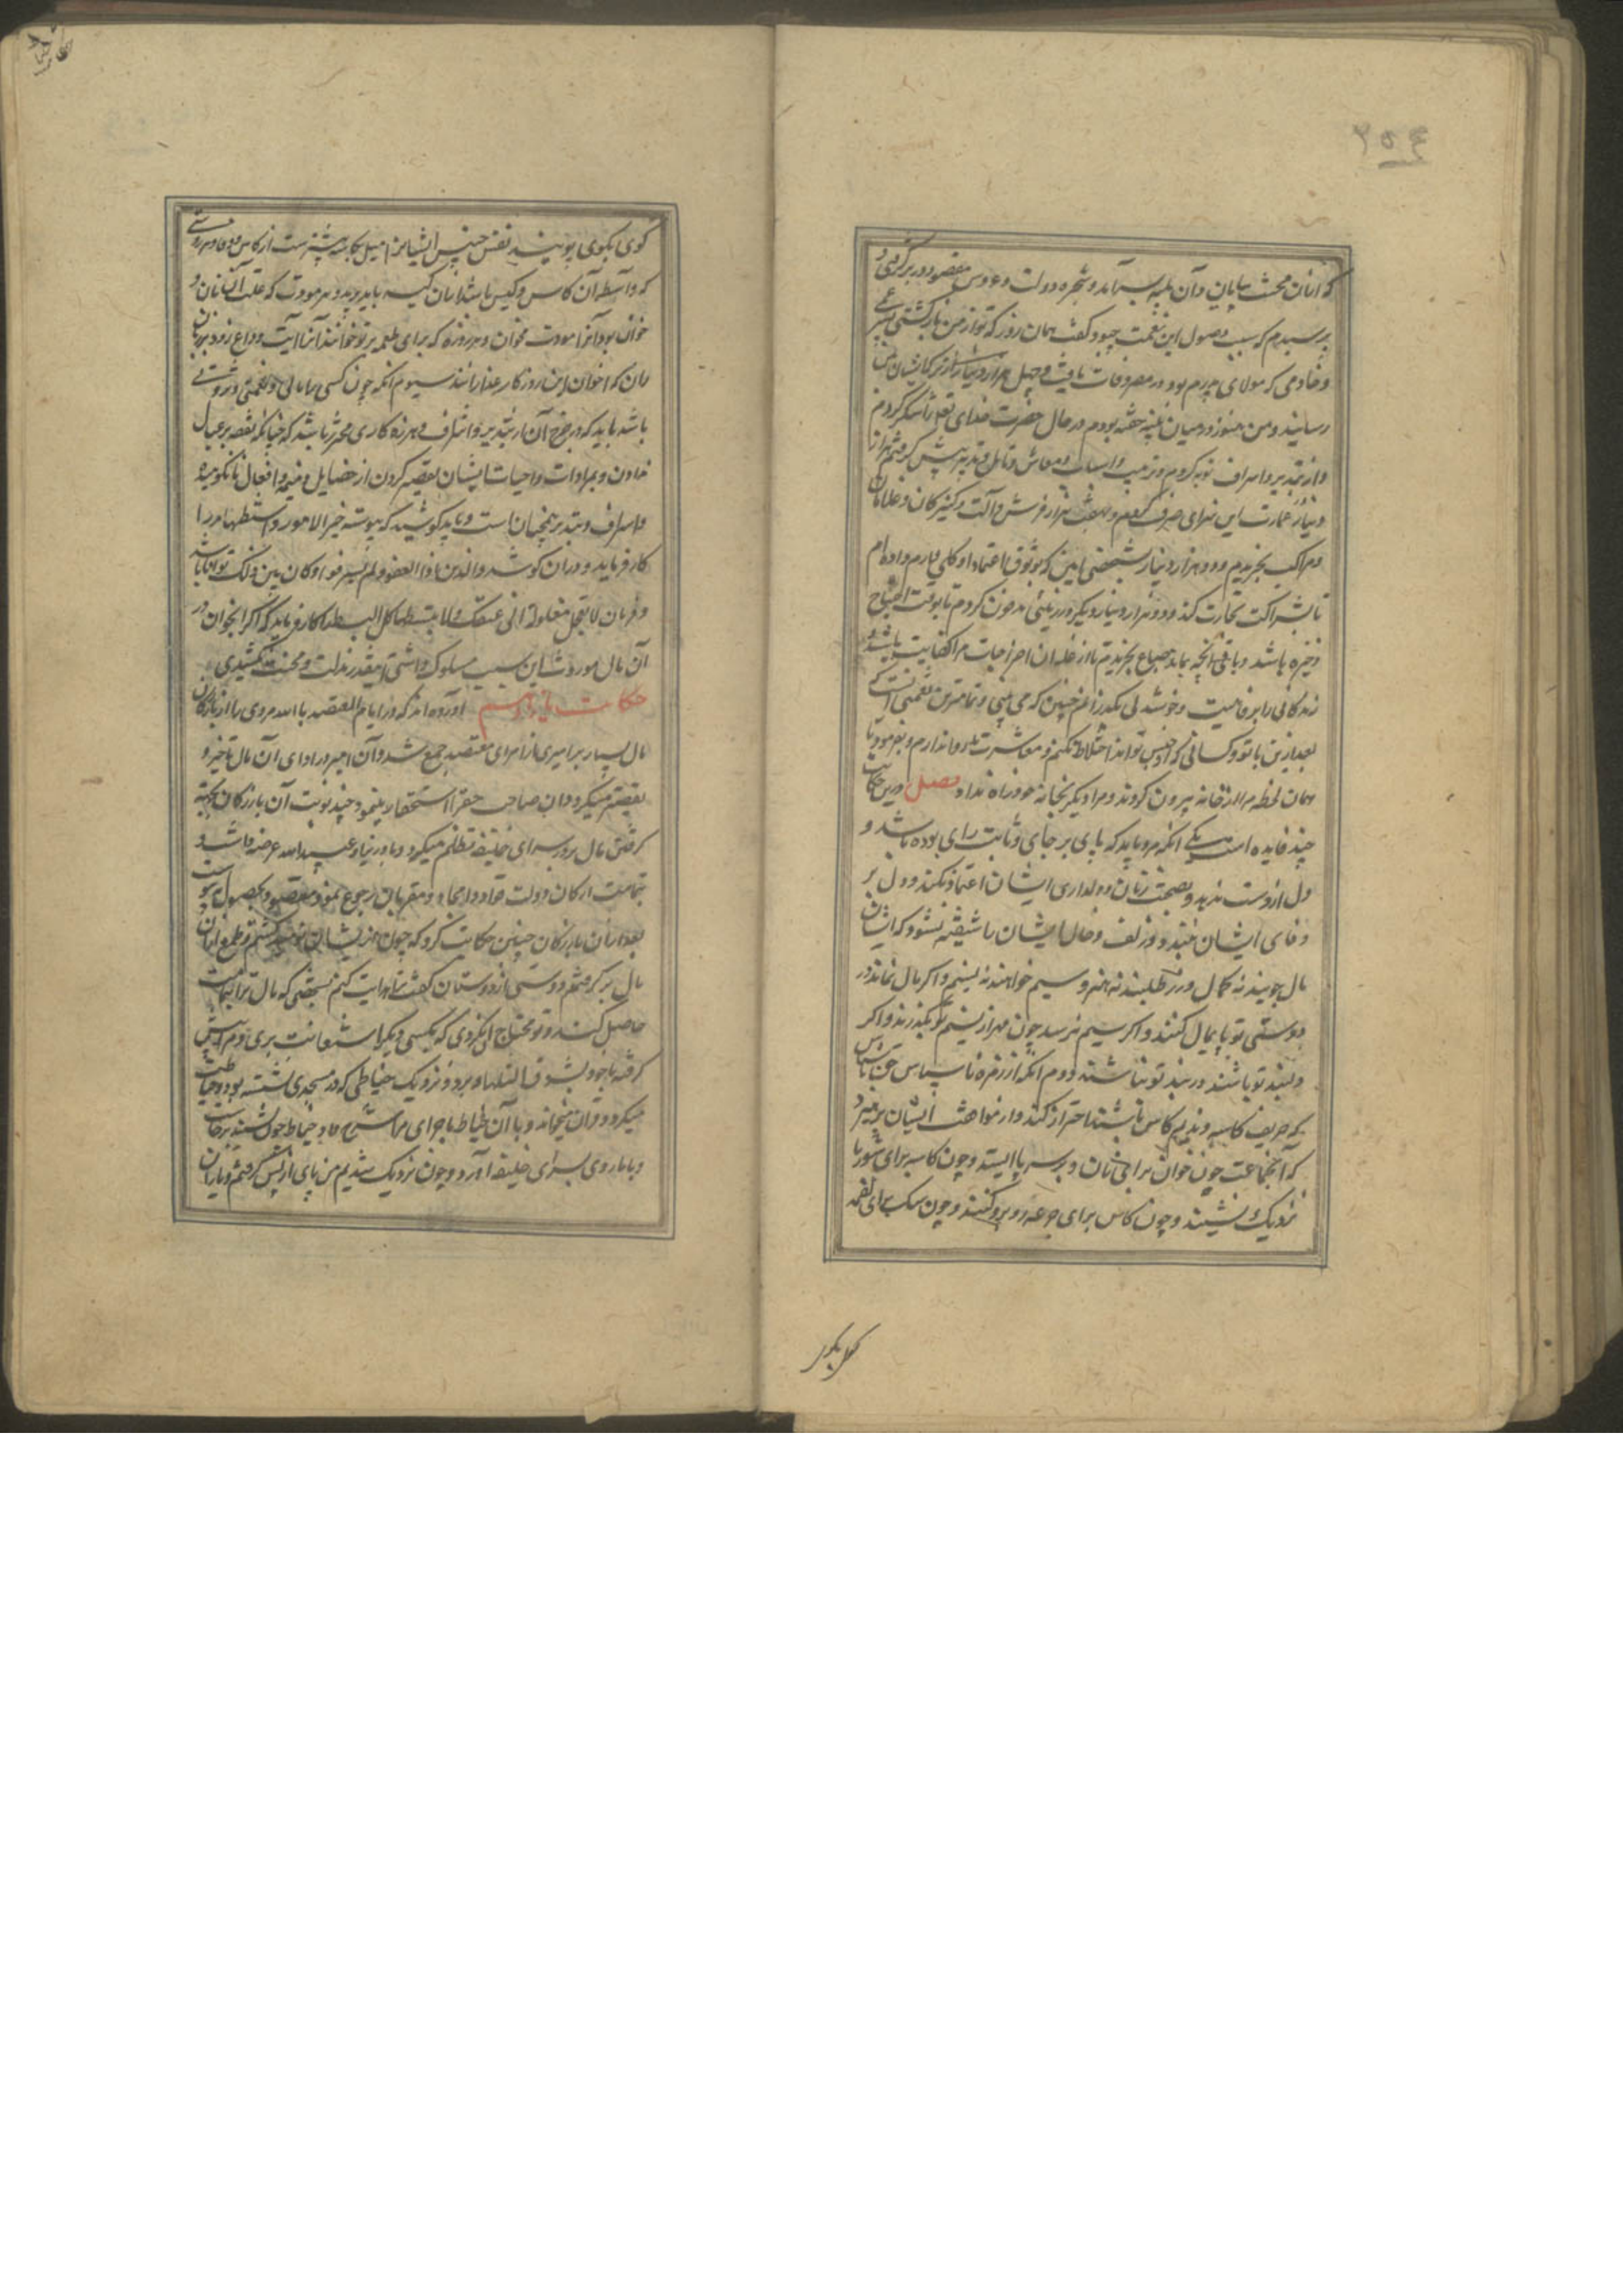 ۲۵۴
که از آن محنت بپایان و آن طیبه بسر آمد و شجره دولت و عروس مقصود در بر گرفتی و
پرسیدم که سبب وصول این نعمت چه بود گفت همان روز که تو از من بازگشتی پسر عمی
و خادمی که مولای پدرم بود در مصر وفات یافت و چهل هزار دینار از ترکه ایشان بمن
رسانیدند و من هنوز در میان پنبه خفته بودم در حال حضرت خدای تعالی را شکر کردم
و از تبذیر و اسراف توبه کردم و ترتیب و اسباب و معاش و تامل و تدبیر پیش گرفتم هزار
دینار در عمارت این سرای صرف کردم و بهفت هزار فرش و آلت و کنیزکان و غلامان
و مراکب بخریدم و دو هزار دینار بشخصی امین که بوثوق و اعتماد او کلی دارم داده ام
تا بشراکت تجارت کند و دو هزار دینار دیگر در زمین مدفون کردم تا بوقت احتیاج
ذخیره باشد و باقی آنچه بماند ضیاع بخریدم تا از غله آن اخراجات مرا کفایت باشد
زندگانی را بر رفاهیت و خوشدلی بگذرانم چنین که می بینی و تمامترین نعمتی آنست که
بعد ازین با تو و کسانی که از جنس تواند اختلاط نکنم و معاشرت روا ندارم و بفرمود تا
همان لحظه مرا از خانه بیرون کردند و مرا دیگر بخانه خود راه نداد فصل درین حکایت
چند فایده است یکی آنکه مرد باید که پای بر جای و ثابت رای بوده باشد و
دل از دست ندهد و بصحبت زنان و دلداری ایشان اعتماد نکند و دل بر
وفای ایشان نبندد و زلف و خال ایشان را شیفته نشود که ایشان
مال جویند نه کمال و زر طلبند نه هنر و سیم خواهند نه نسیم و اگر مال نماند در
دوستی تو پایمال کنند و اگر سیم نرسد چون مهر از نسیم تو بگذرند و اگر
دلبند تو باشند در بند تو نباشند دوم آنکه از زمره ناسپاس حق ناشناس
که حریف کاسه و ندیم کاس باشند احتراز کند و از موانست ایشان بپرهیزد
که آن جماعت چون خوان برای نان و بر سر پا ایستند و چون کاسه برای شوربا
نزدیک نشینند و چون کاس برای جرعه رو برو کنند و چون سگ برای لقمه
کوی بکوی
کوی بکوی پویند نفس خسیس ایشانرا میل بکاسه بیشترست از کاس و هر دوستی
که واسطه آن کاس و کیس باشد از آن کیسه باید برید و هر مودت که علت آن نان و
خوان بود آنرا مودت مخوان و هر روزه که برای طعمه بر تو خوانند آنرا آیت وداع زود بر زبان
ران که اخوان این روزگار غدارانند سیوم آنکه چون کسی را مالی و نعمتی و ثروتی
باشد باید که در خرج آن از تبذیر و اسراف و هرزه کاری محترز باشد که چنانکه نفقه بر عیال
نادادن و بمرادات واجبات ایشان تقصیر کردن از خصایل ذمیمه و افعال نانکوهیده
و اسراف و تبذیر همچنان است و باید کوشید که پیوسته خیر الامور اوسطها را
کار فرماید و در آن کوشد و الذین اذا انفقوا لم یسرفوا و کان بین ذلک قواما باشد
و فرمان لا تجعل یدک مغلولة الی عنقک و لا تبسطها کل البسط را کار فرماید که اگر آن جوان در
آن مال موروث این سبیل مسلوک داشتی اینقدر مذلت و محنت نکشیدی
حکایت آورده اند که در ایام المعتضد بالله مردی را از بازرگانان
مال بسیار بر امیری از امرای معتضد جمع شد و آن امیر در ادای آن مال تاخیر و
تقصیر میکرد و آن صاحب حق را استحقار مینمود چند نوبت آن بازرگان بجهة
گرفتن مال بر در سرای خلیفه تظلم میکرد و عبیدالله عرضه داشت
بتمامت ارکان دولت و مقربان رجوع نمود مقصود بحصول نه پیوست
بعد از آن بازرگان چنین حکایت کرد که چون از ایشان نومید گشتم و طمع از آن
مال برگرفتم دوستی از دوستان گفت ترا هدایت کنم بشخصی که مال ترا بتمامت
حاصل کند و تو محتاج آن نگردی که بکسی دیگر استعانت بری و مرا دست
گرفته با خود بسوق الثلثا برد و نزدیک خیاطی که در مسجدی نشسته بود و خیاطت
میکرد و قرآن میخواند و با آن خیاط ماجرای مرا شرح داد و خیاط چون بشنید برخاست
و با ما روی بسرای خلیفه آورد و چون نزدیک شدیم من پای از پس گرفتم و با آن